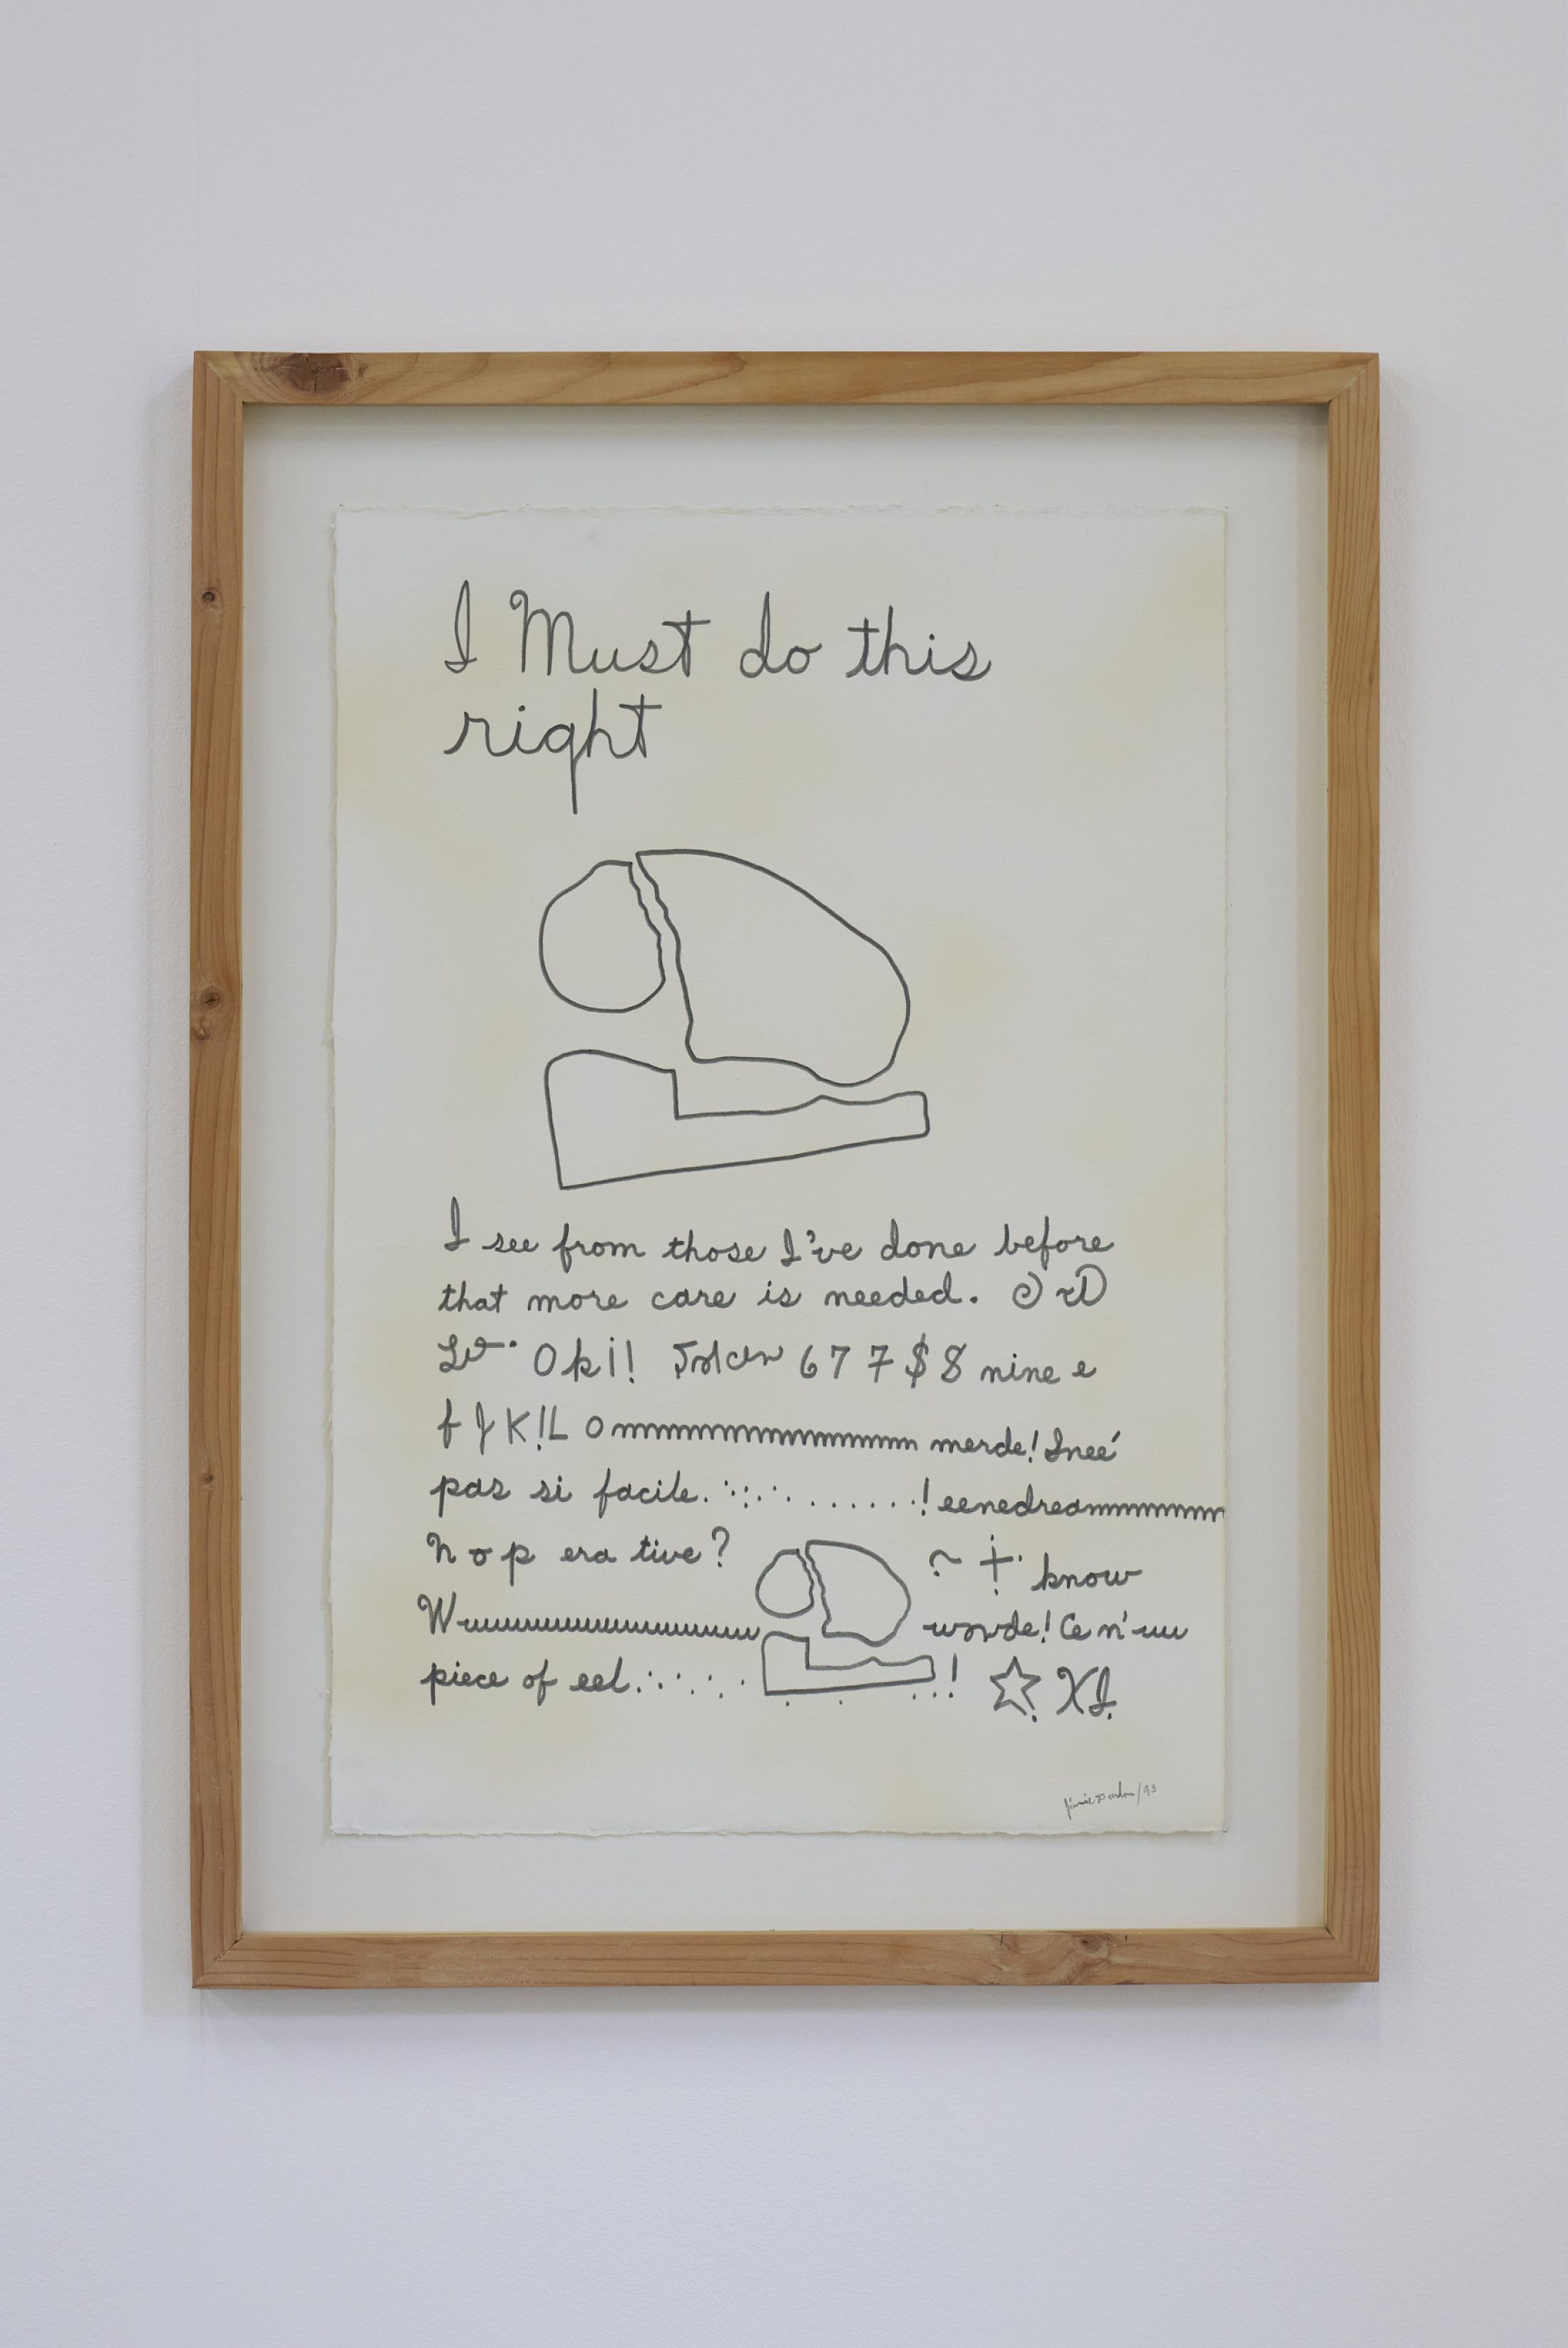 I Must do this
right
I see from those I've done before
that more care is needed.
Oki!! 6 7 7 $ 8 nine e
f J K!L ommmmmmmmmmmmmmmm merde! Ineé
pas si facile. ::·· .......! eenedreammmmmmm
n o p era tive? ~ know
Wuuuuuuuuuuuuuuuuu worde! Ce n'uu
piece of eel ....... ...! ☆ XI.
/93